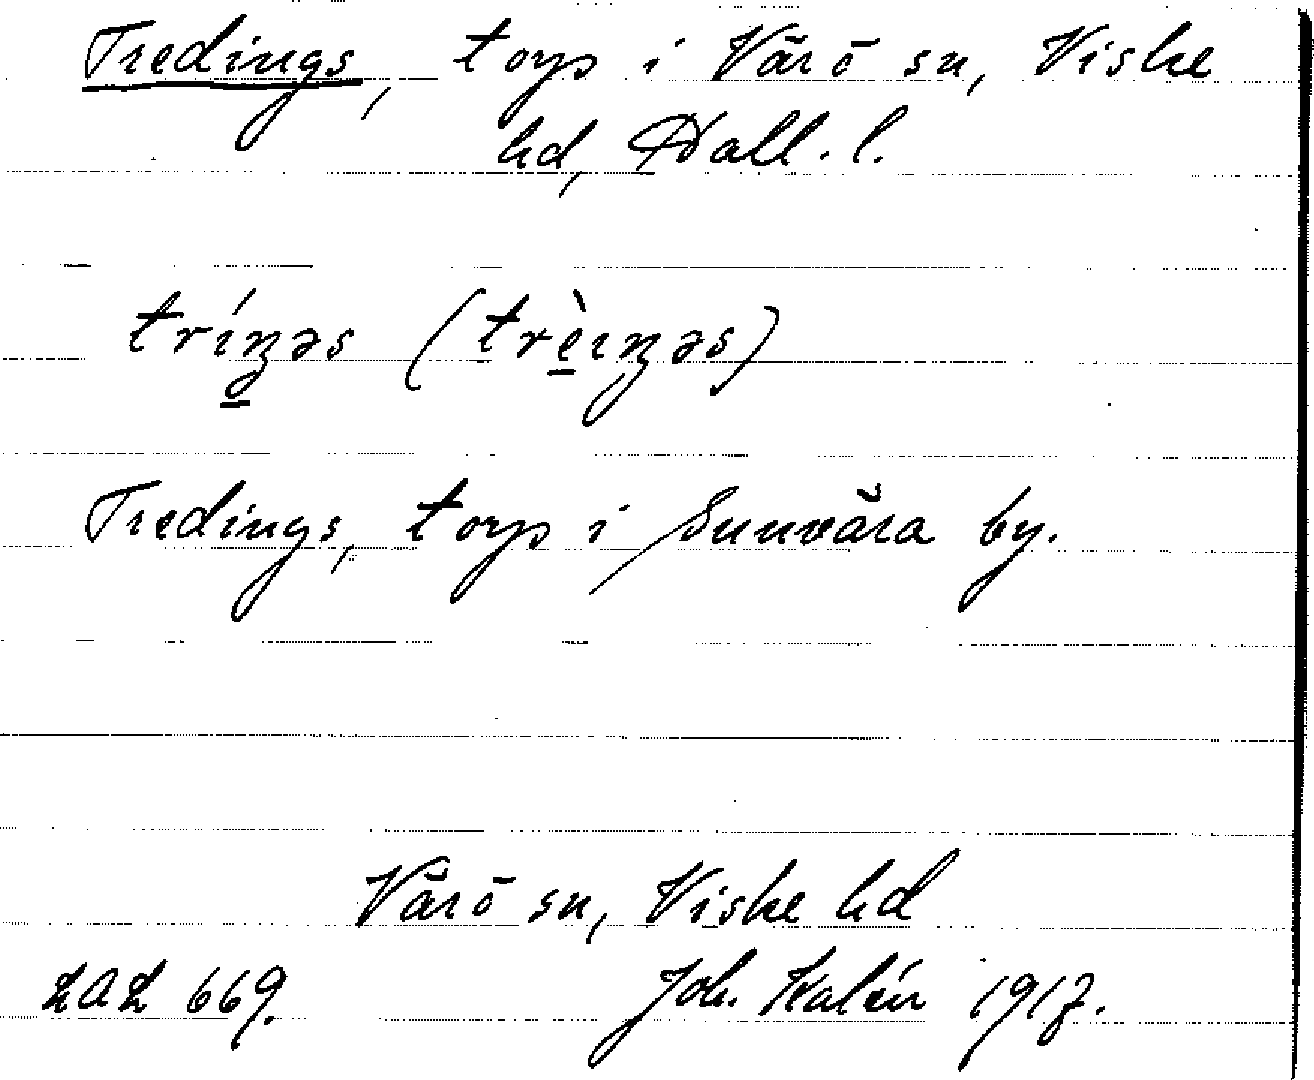 Tredings, torp i Värö sn, Viske
hd, Hall. l.
tríŋəs (trèıŋəs)
Tredings, torp i Sunvära by.
Värö sn, Viske hd
LAL 669. Joh. Kalén 1917.